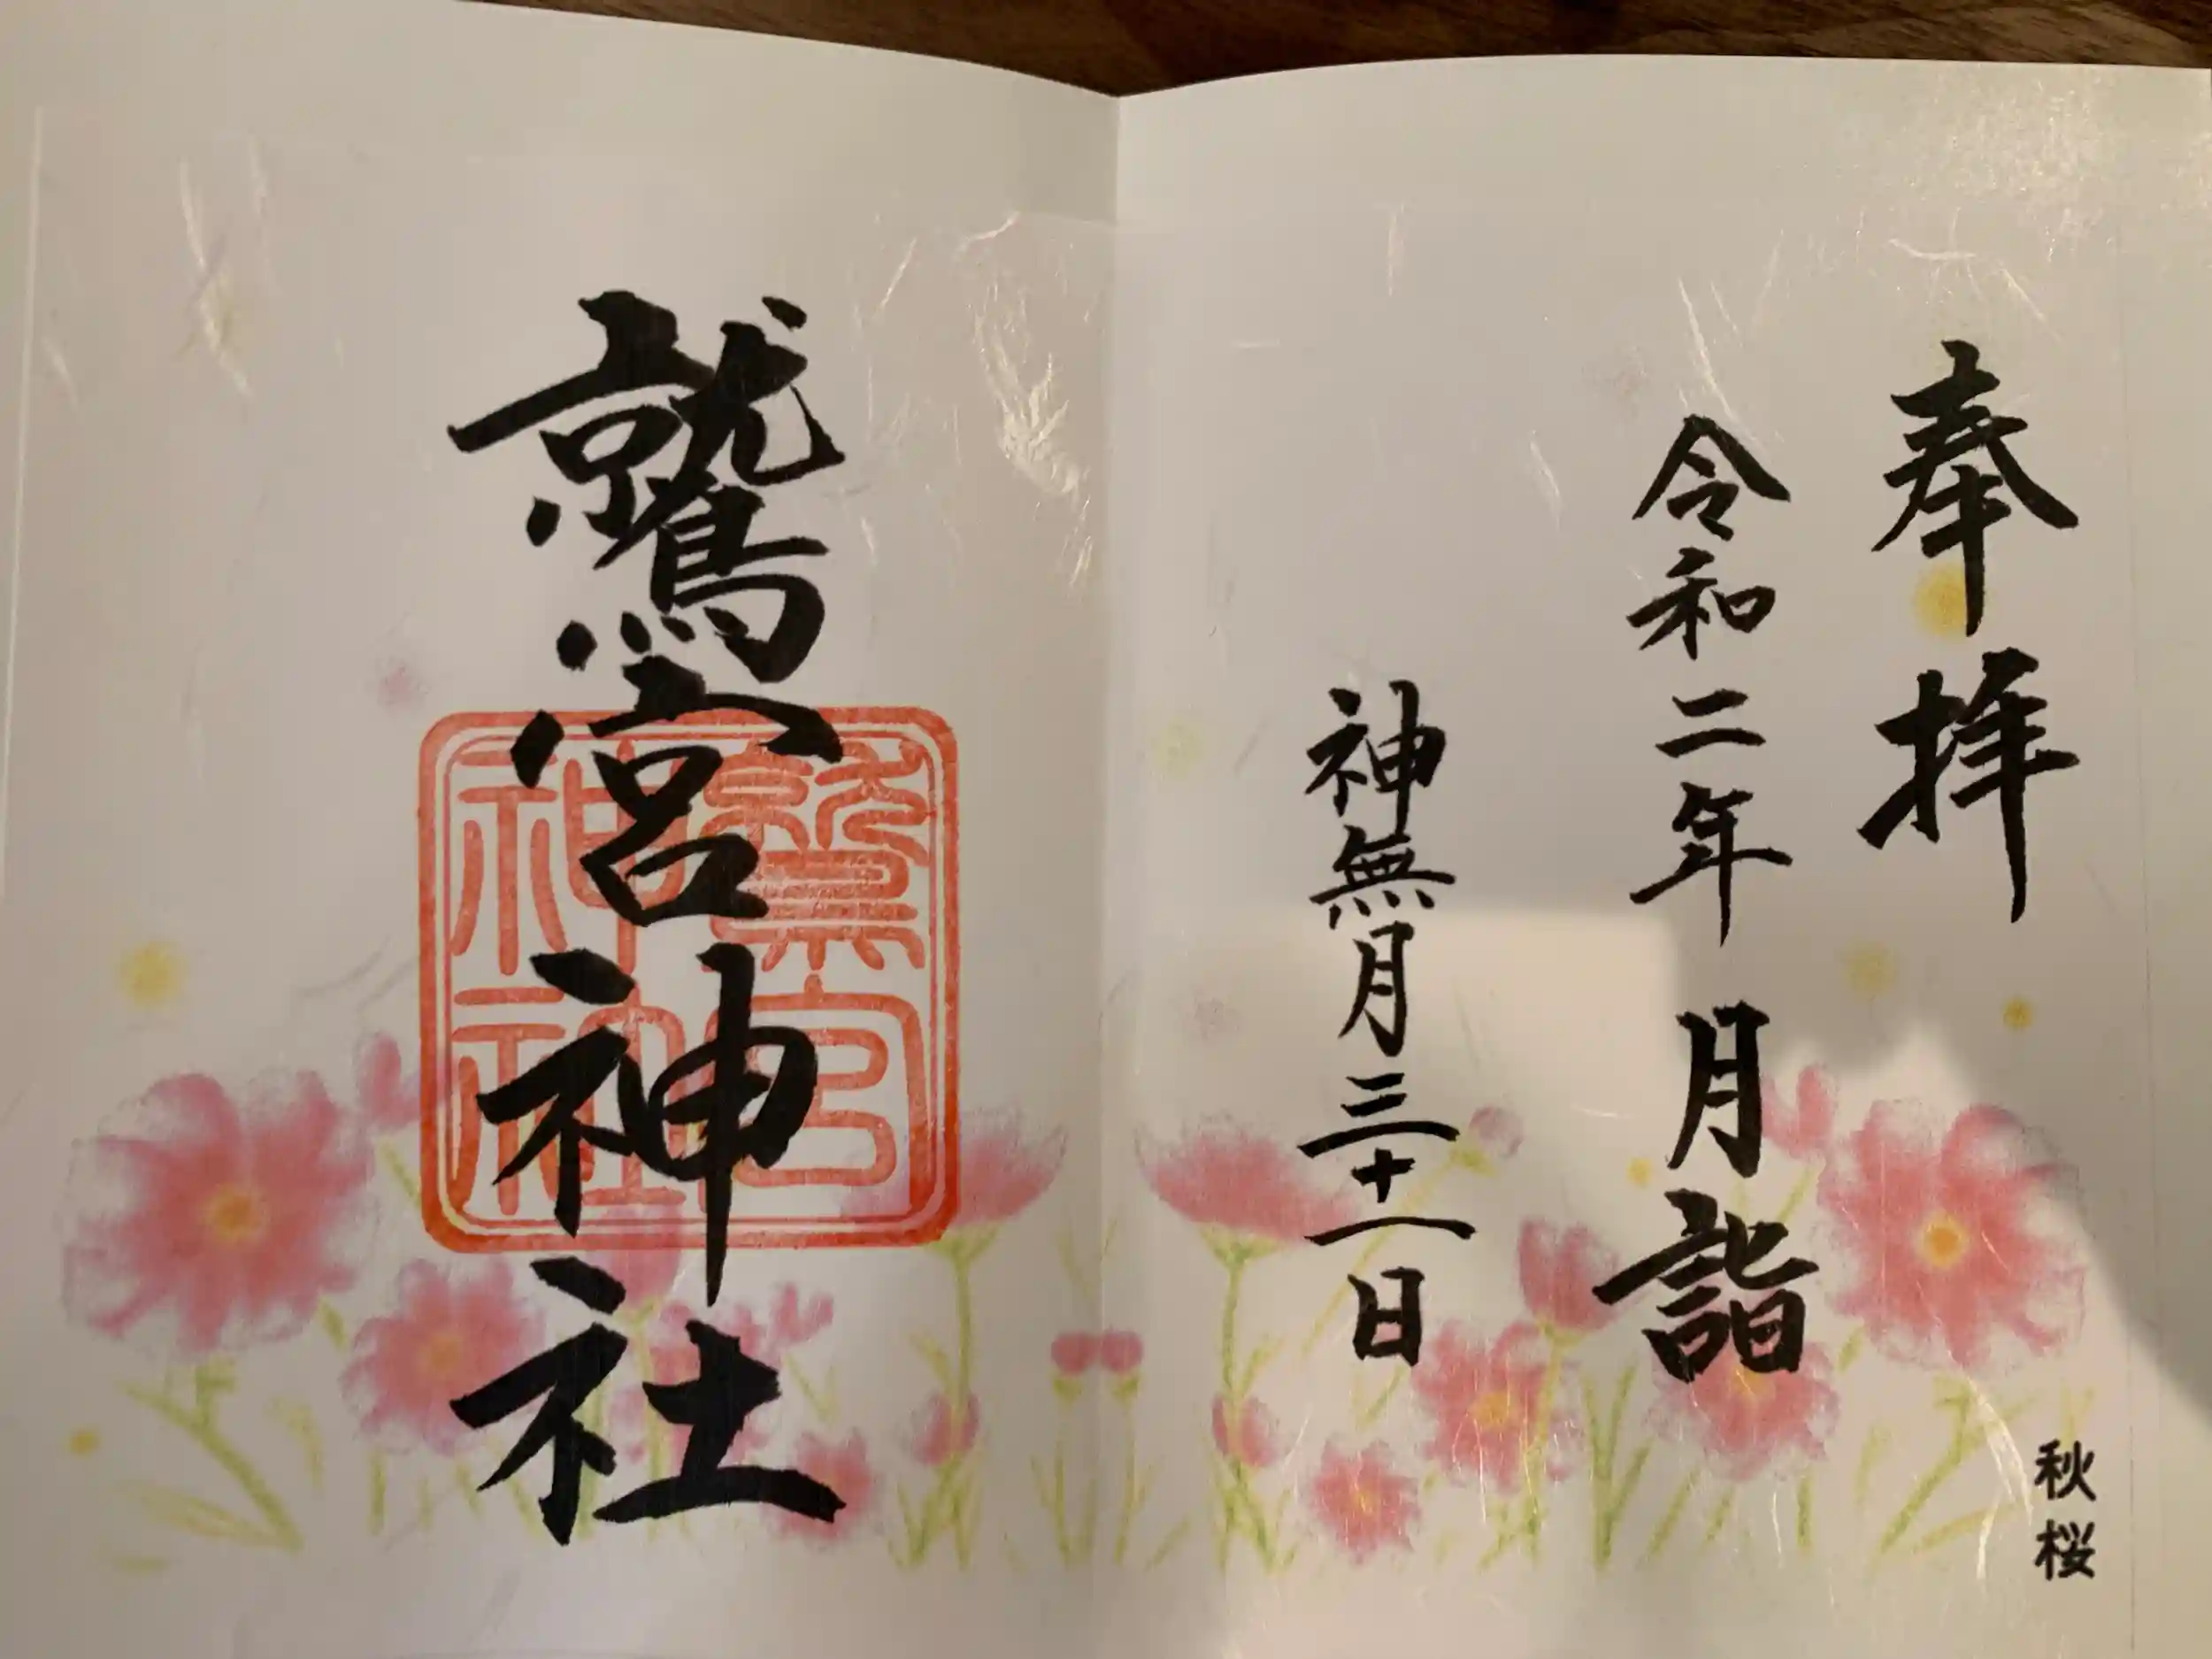 奉拝
令和二年 月詣
神無月三十一日
秋桜
鷲宮神社
鷲宮
神社